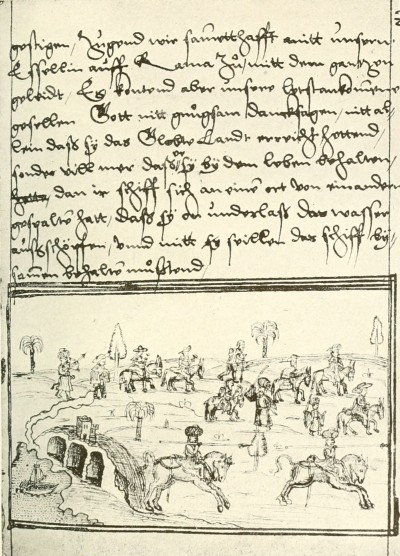 gestigen / Zugend wir sametthafft mitt unsern
Essellin auff Rama Zu / mitt dem gantzen
geleidt / Es kontend aber unsere
gesellen Gott nitt gnugsam dancksagen / nitt al-
lein dass sy das Globte Landt erreicht hettend
sonder vill mer dass sy by dem leben behalten /
dan ir schiff sich an einem ort von einander
gespalten hatt / dass sy on underlass das wasser
aussschöpffen / unnd mitt seyllen das schiff by
samen behalten mussttend /